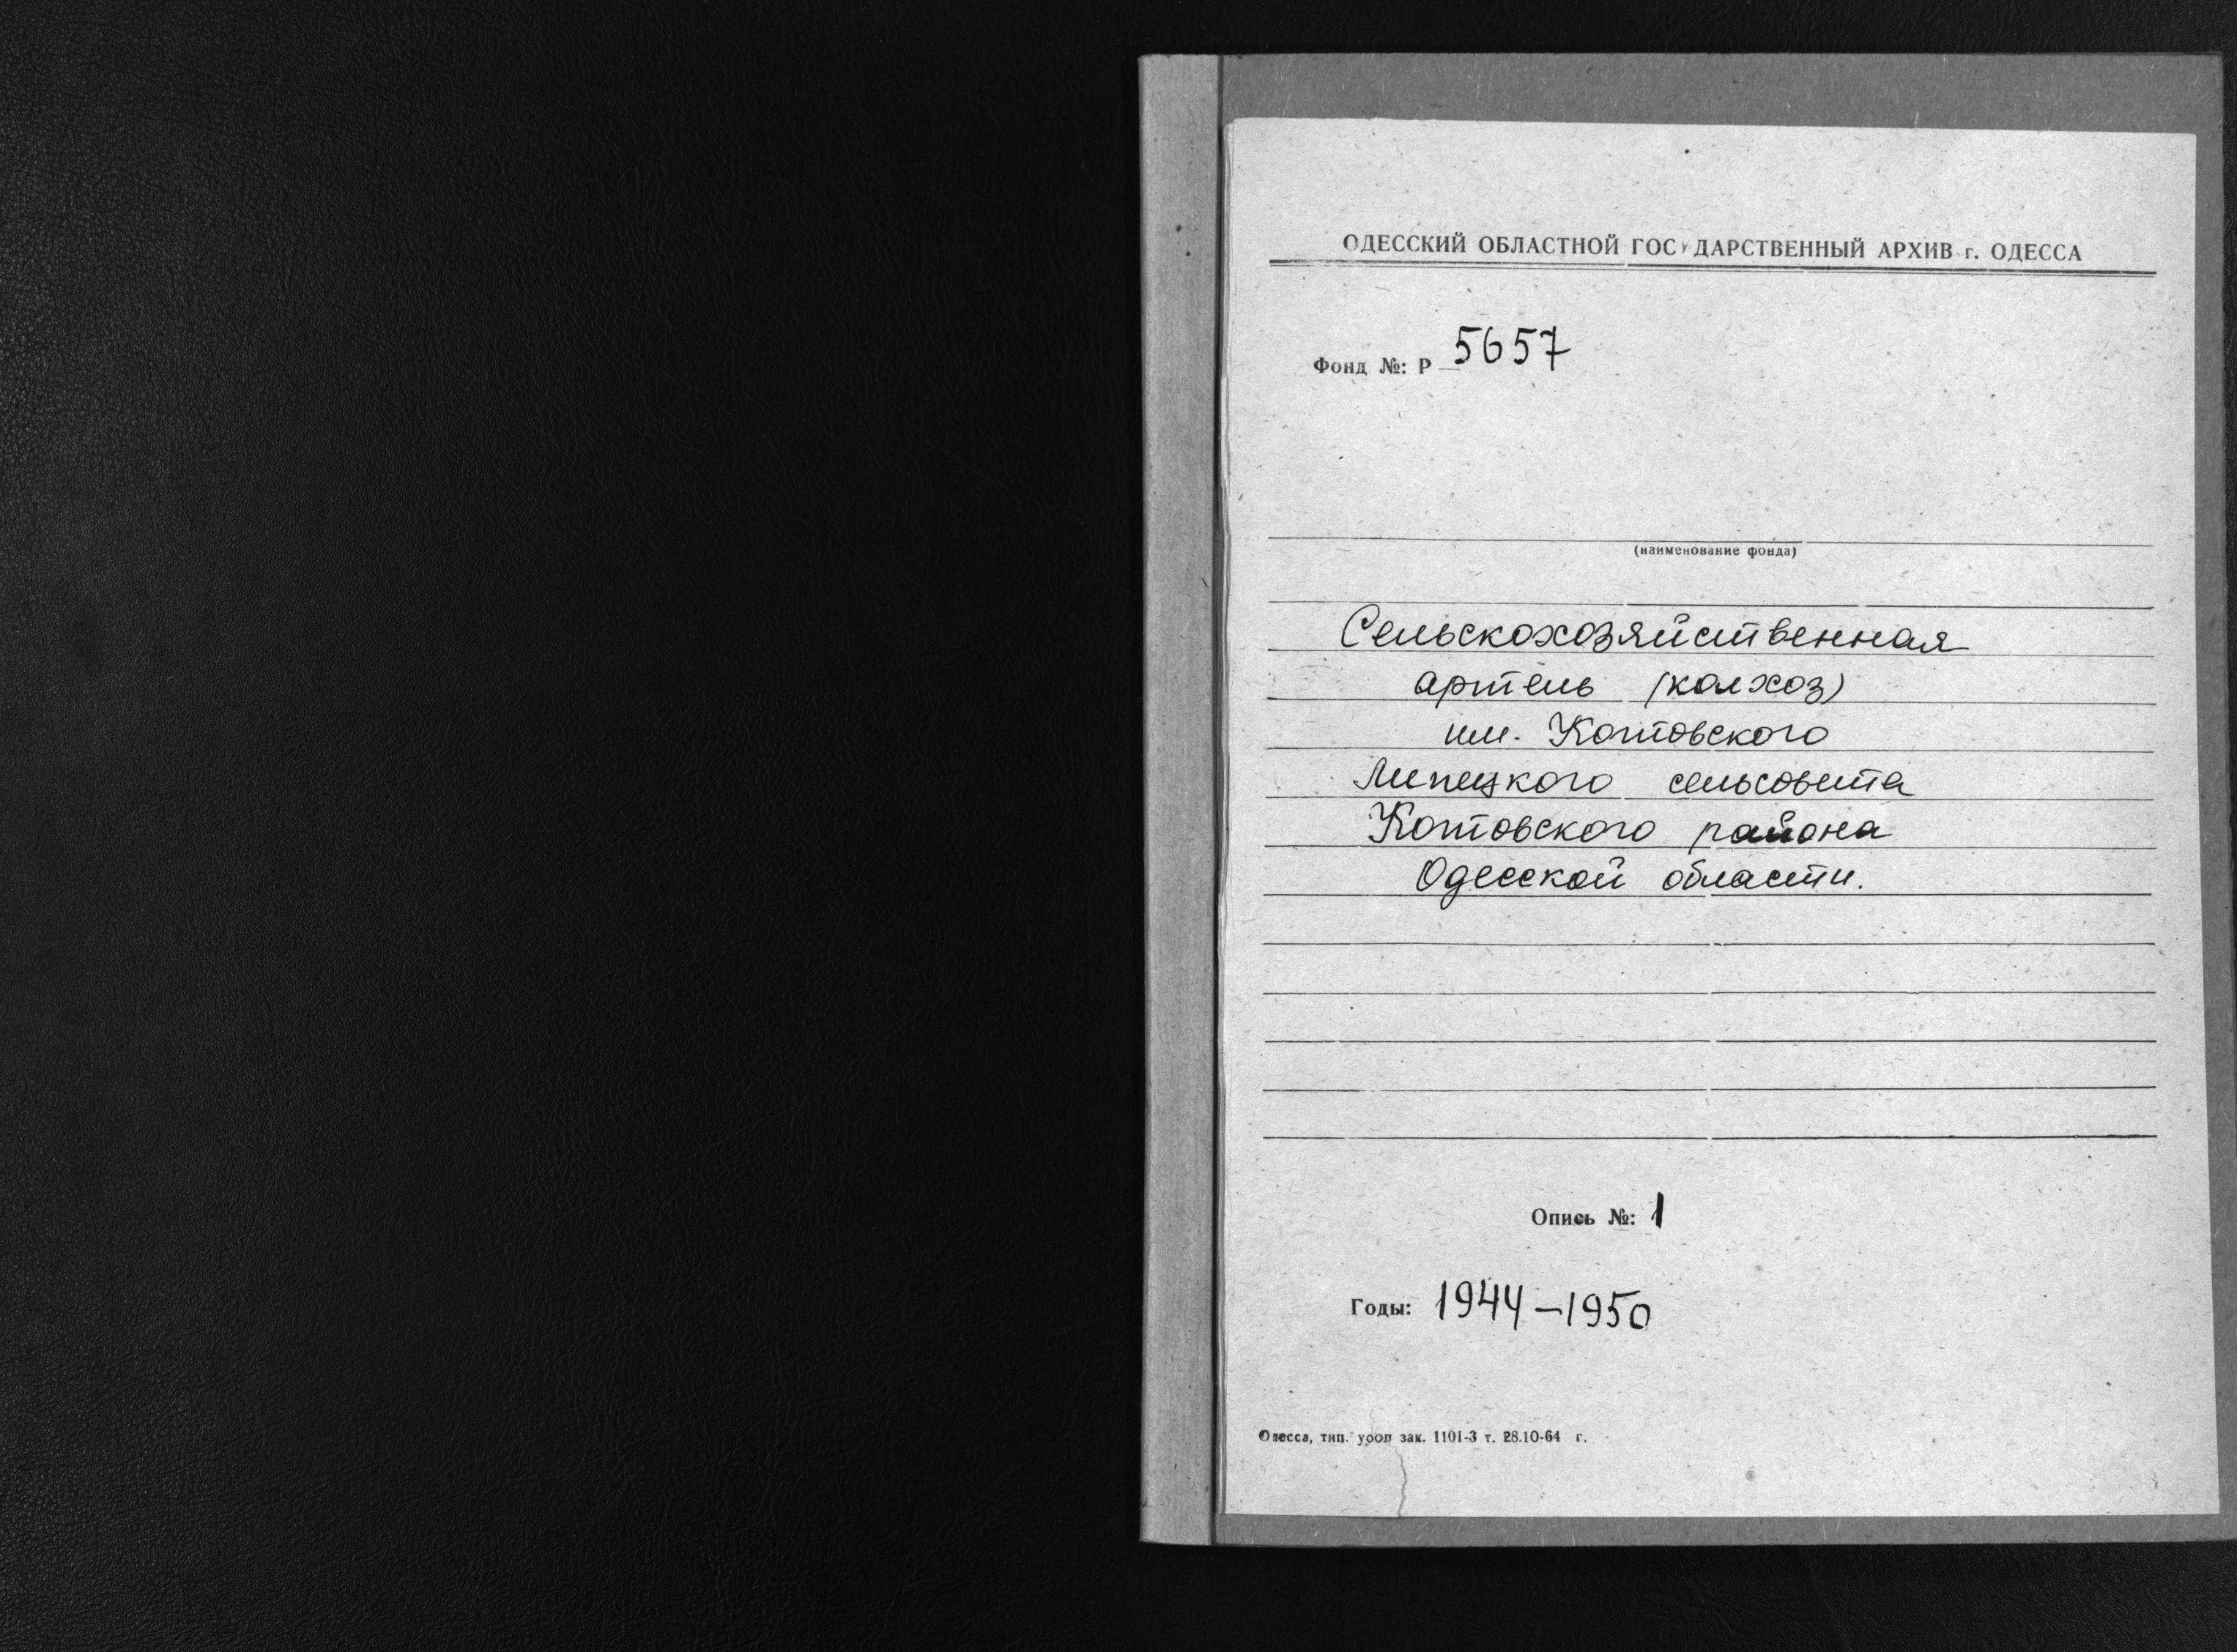 ОДЕССКИЙ ОБЛАСТНОЙ ГОСУДАРСТВЕННЫЙ АРХИВ г. ОДЕССА
Фонд №: Р 5657
(наименование фонда)
Сельскохозяйственная
артель (колхоз)
им. Котовского
Липецкого сельсовета
Котовского района
Одесской области.
Опись №: 1
Годы: 1944-1950
Одесса, тип. зак. 1101-3 т. 28.10-64 г.